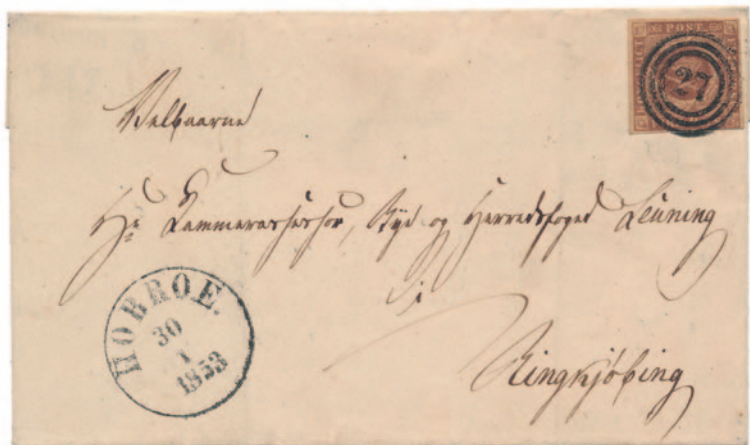 POST
27
Velbaarne
Hr Kammerassessor, Bye og Herredsfoged Leuning
i
Ringkjøbing
HOBROE.
30
1
1853